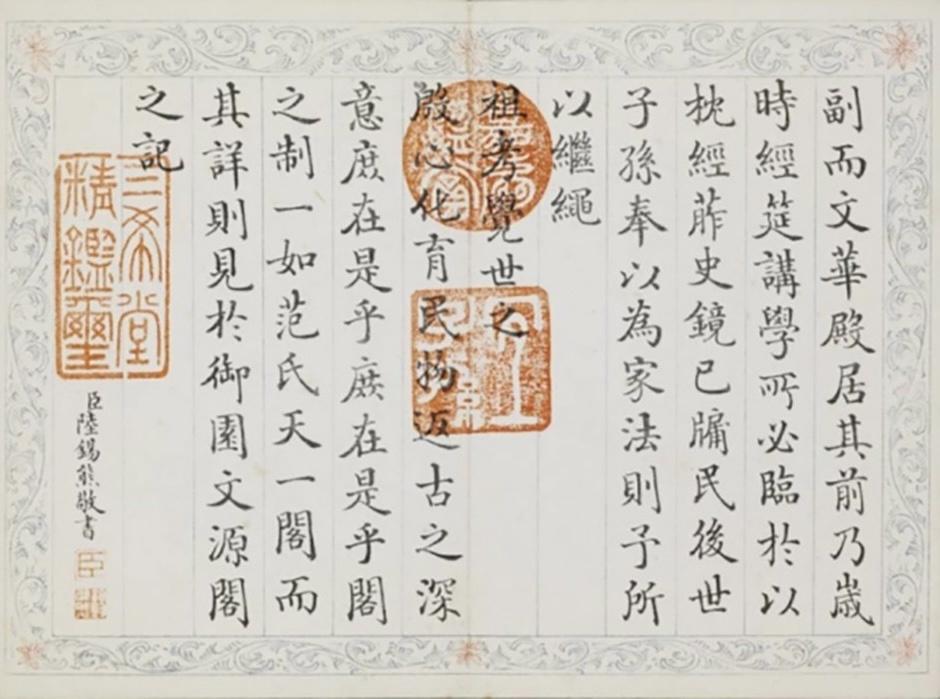 副而文華殿居其前乃歲
時經筵講學所必臨於以
枕經葄史鏡已牖民後世
子孫奉以為家法則予所
以繼繩
祖考覺世之
殷心化育民物返古之深
意庶在是乎庶在是乎閣
之制一如范氏天一閣而
其詳則見於御園文源閣
之記
宜子孫
三希堂
精鑑璽
臣陸錫熊敬書
臣